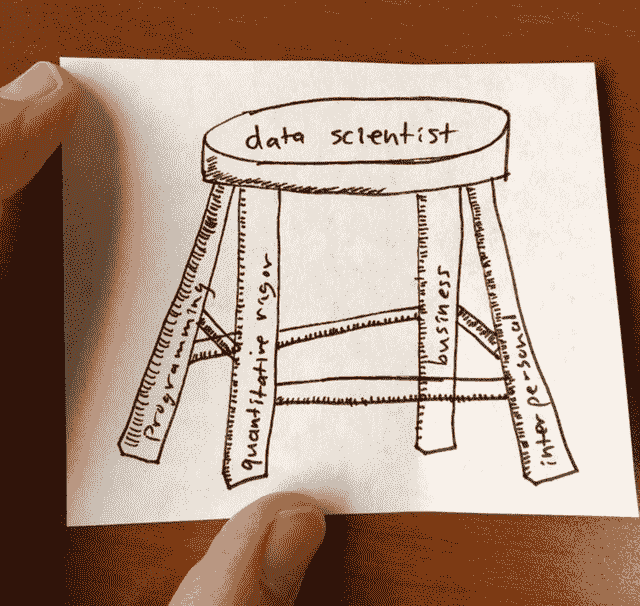 data scientist
programming
quantitative rigor
business
interpersonal